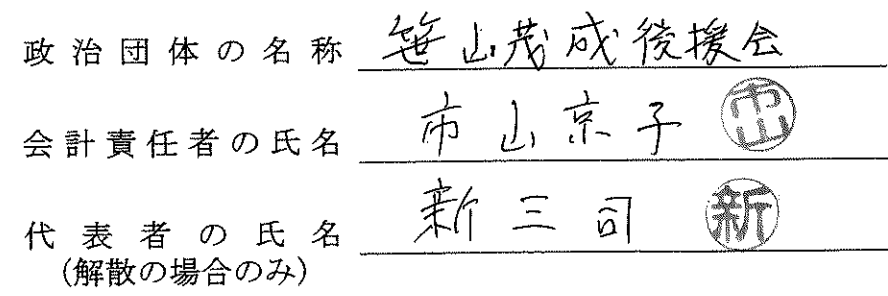 政治団体の名称 笹山茂成後援会
会計責任者の氏名 市山京子 市山
代表者の氏名 新三司 新
(解散の場合のみ)